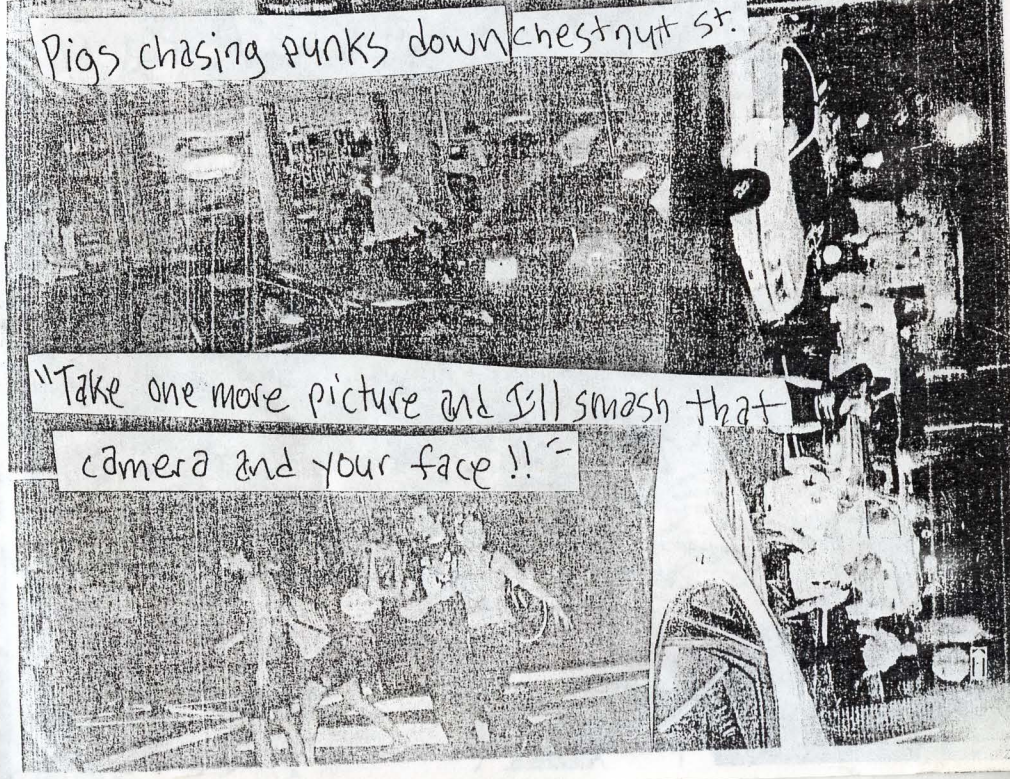 Pigs chasing punks down chestnutt st.
"Take one more picture and I'll smash that
camera and your face!!"